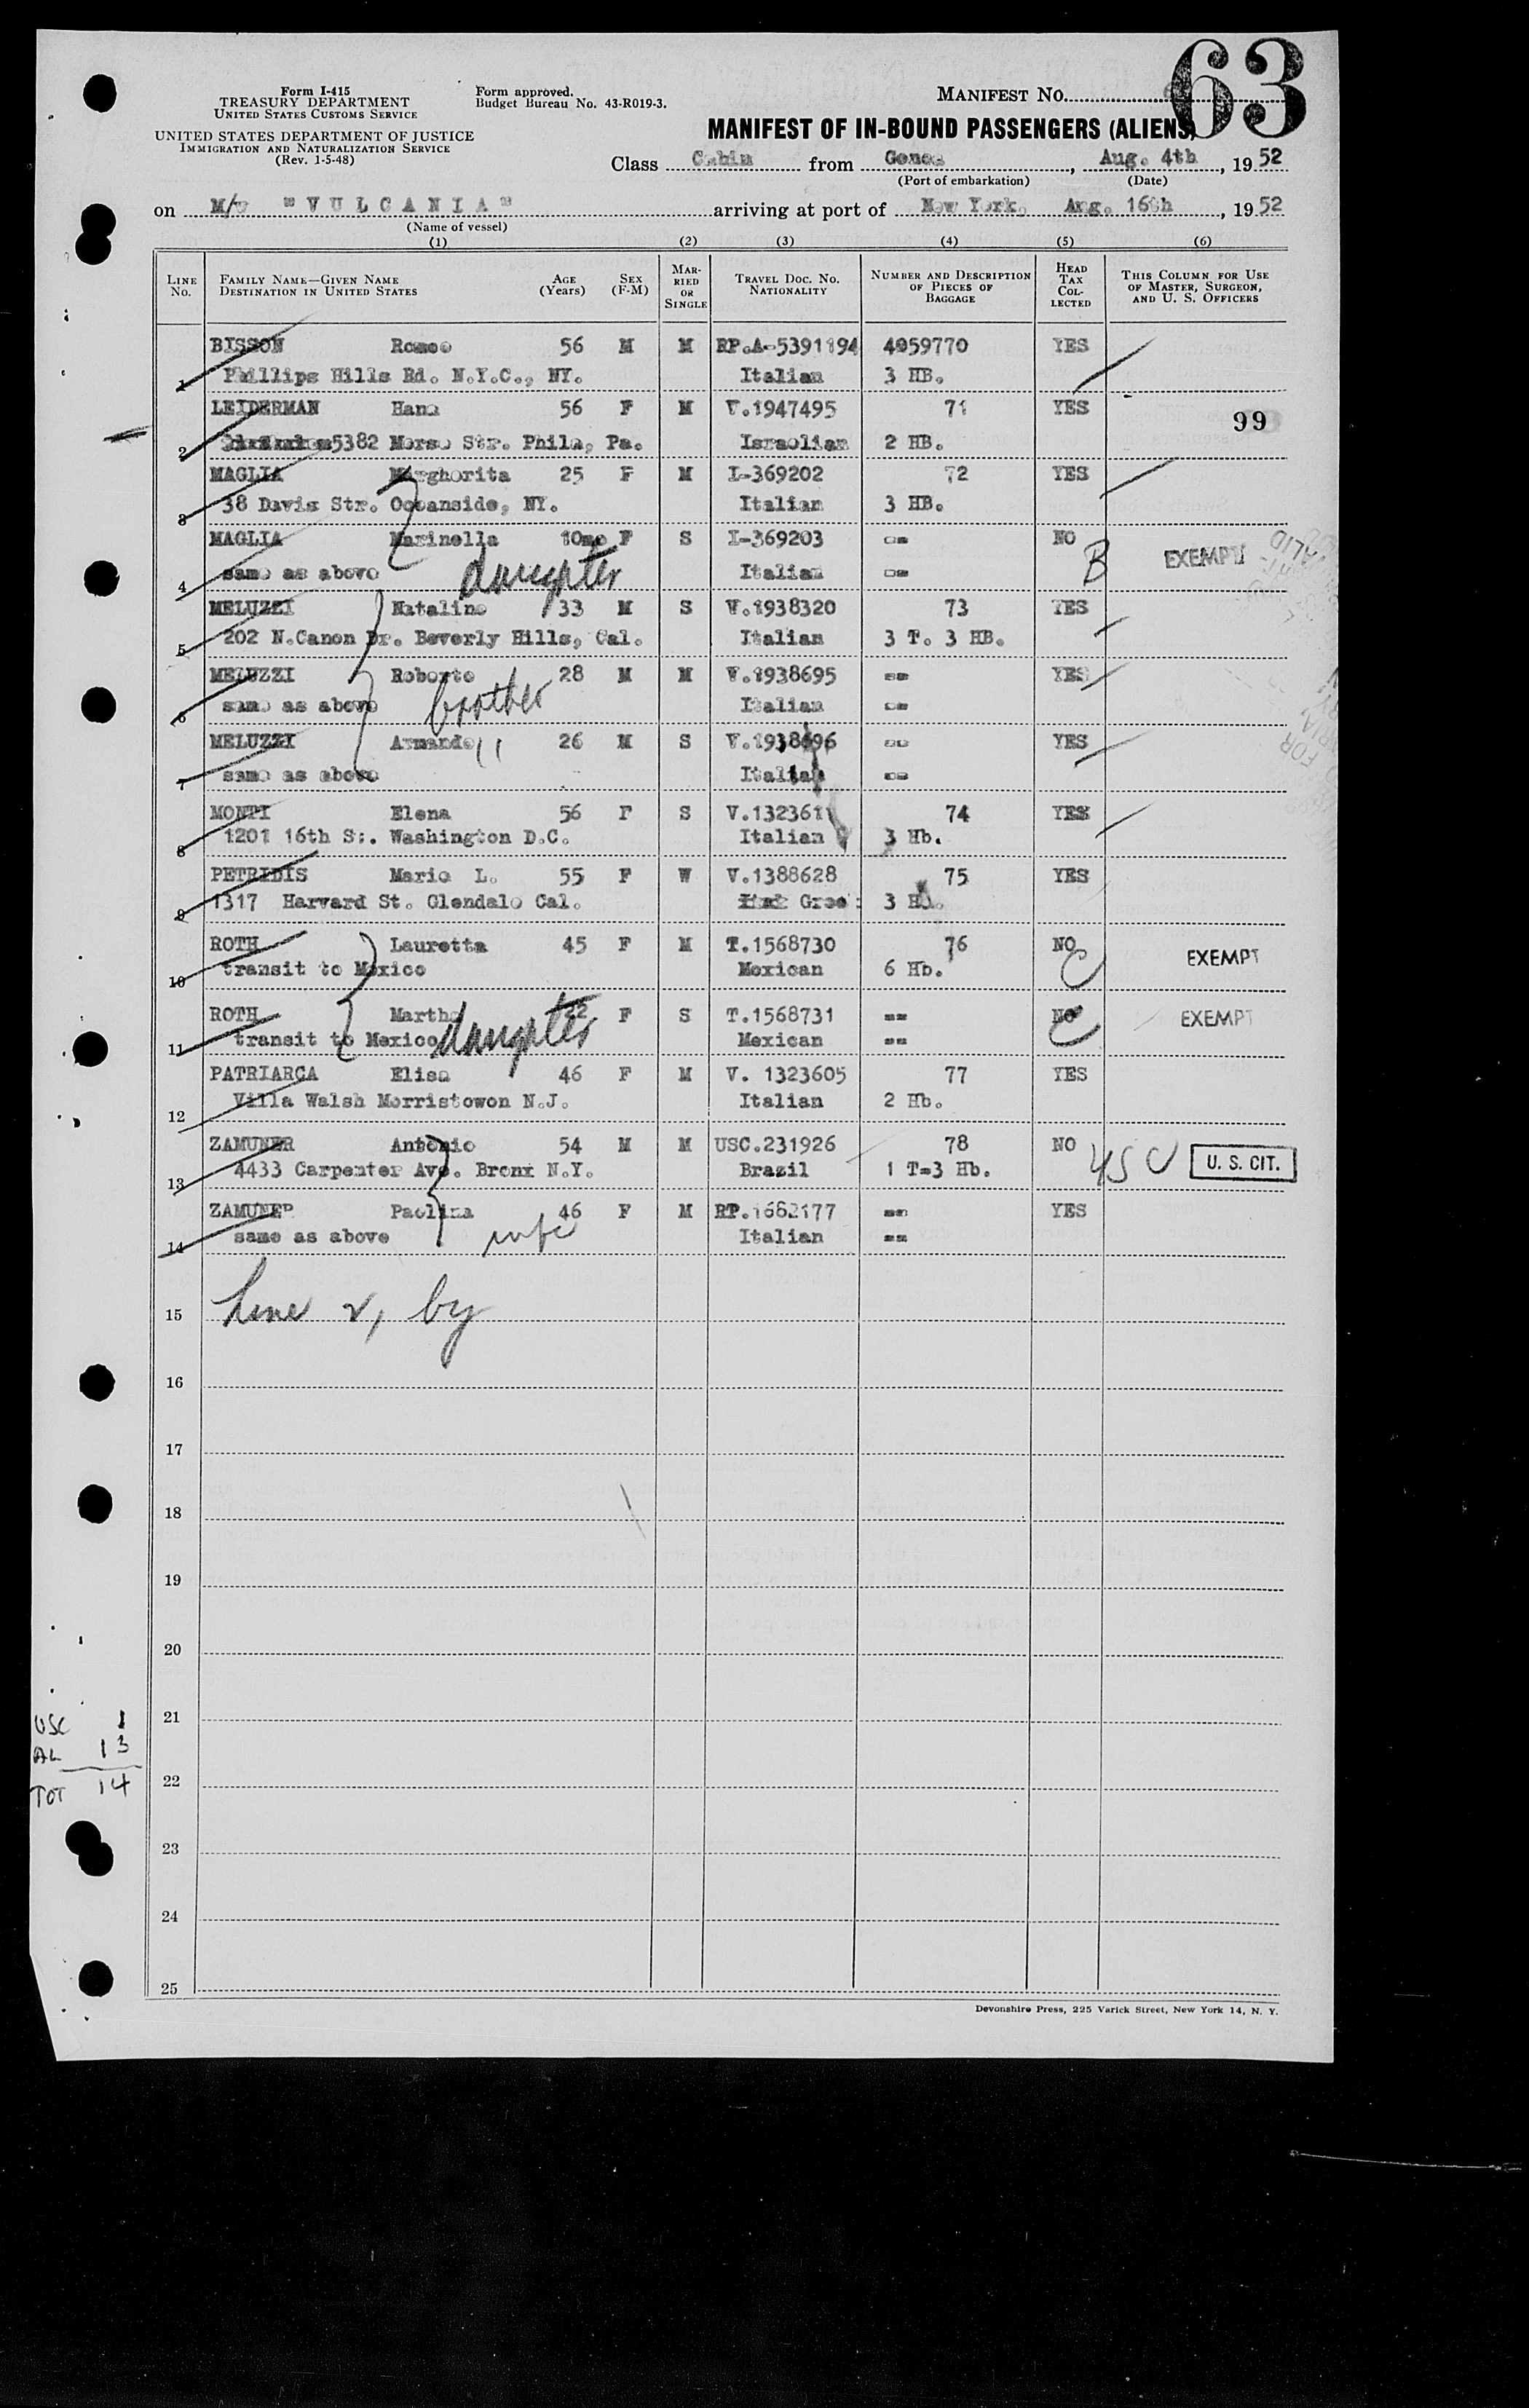 63
Form I-415
TREASURY DEPARTMENT
UNITED STATES CUSTOMS SERVICE
UNITED STATES DEPARTMENT OF JUSTICE
IMMIGRATION AND NATURALIZATION SERVICE
(Rev. 1-5-48)
Form approved.
Budget Bureau No. 43-R019-3.
MANIFEST NO.
MANIFEST OF IN-BOUND PASSENGERS (ALIENS)
Class Cabin from Genoa, Aug. 4th, 1952
(Port of embarkation) (Date)
on M/v "VULCANIA" arriving at port of New York. Aug. 16th, 1952
(Name of vessel)
(1) (2) (3) (4) (5) (6)
LINE No. FAMILY NAME—GIVEN NAME DESTINATION IN UNITED STATES AGE (Years) SEX (F-M) MARRIED OR SINGLE TRAVEL DOC. NO. NATIONALITY NUMBER AND DESCRIPTION OF PIECES OF BAGGAGE HEAD TAX COLLECTED THIS COLUMN FOR USE OF MASTER, SURGEON, AND U. S. OFFICERS
BISSON Romeo 56 M M RP.A-5391194 4059770 YES
1 Phillips Hills Rd. N.Y.C., NY. Italian 3 HB.
LEIDERMAN Hana 56 F M V.1947495 71 YES
99
2 5382 Morse Str. Phila, Pa. Israelian 2 HB.
MAGLIA Margherita 25 F M I-369202 72 YES
3 38 Davis Str. Oceanside, NY. Italian 3 HB.
MAGLIA Marinella 10mo F S I-369203 -- NO
4 same as above daughter Italian -- B EXEMPT
MELUZZI Natalino 33 M S V.1938320 73 YES
5 202 N.Canon Dr. Beverly Hills, Cal. Italian 3 T. 3 HB.
MELUZZI Roberto 28 M M V.1938695 -- YES
6 same as above brother Italian --
MELUZZI Armando 11 26 M S V.1938696 -- YES
7 same as above Italian --
MONTI Elena 56 F S V.1323611 74 YES
8 1201 16th St. Washington D.C. Italian 3 Hb.
PETRIDIS Marie L. 55 F W V.1388628 75 YES
9 1317 Harvard St. Glendale Cal. 3 Hb.
ROTH Lauretta 45 F M T.1568730 76 NO
10 transit to Mexico Mexican 6 Hb. C EXEMPT
ROTH Martha 22 F S T.1568731 -- NO C EXEMPT
11 transit to Mexico daughter Mexican --
PATRIARCA Elisa 46 F M V. 1323605 77 YES
12 Villa Walsh Morristowon N.J. Italian 2 Hb.
ZAMUNER Antonio 54 M M USC.231926 78 NO
13 4433 Carpenter Ave. Bronx N.Y. Brazil 1 T-3 Hb. USC U. S. CIT.
ZAMUNER Paolina 46 F M RP.1682177 -- YES
14 same as above wife Italian --
15 Line 2, by
16
17
18
19
20
21
USC 1
AL 13
TOT 14
22
23
24
25
Devonshire Press, 225 Varick Street, New York 14, N. Y.